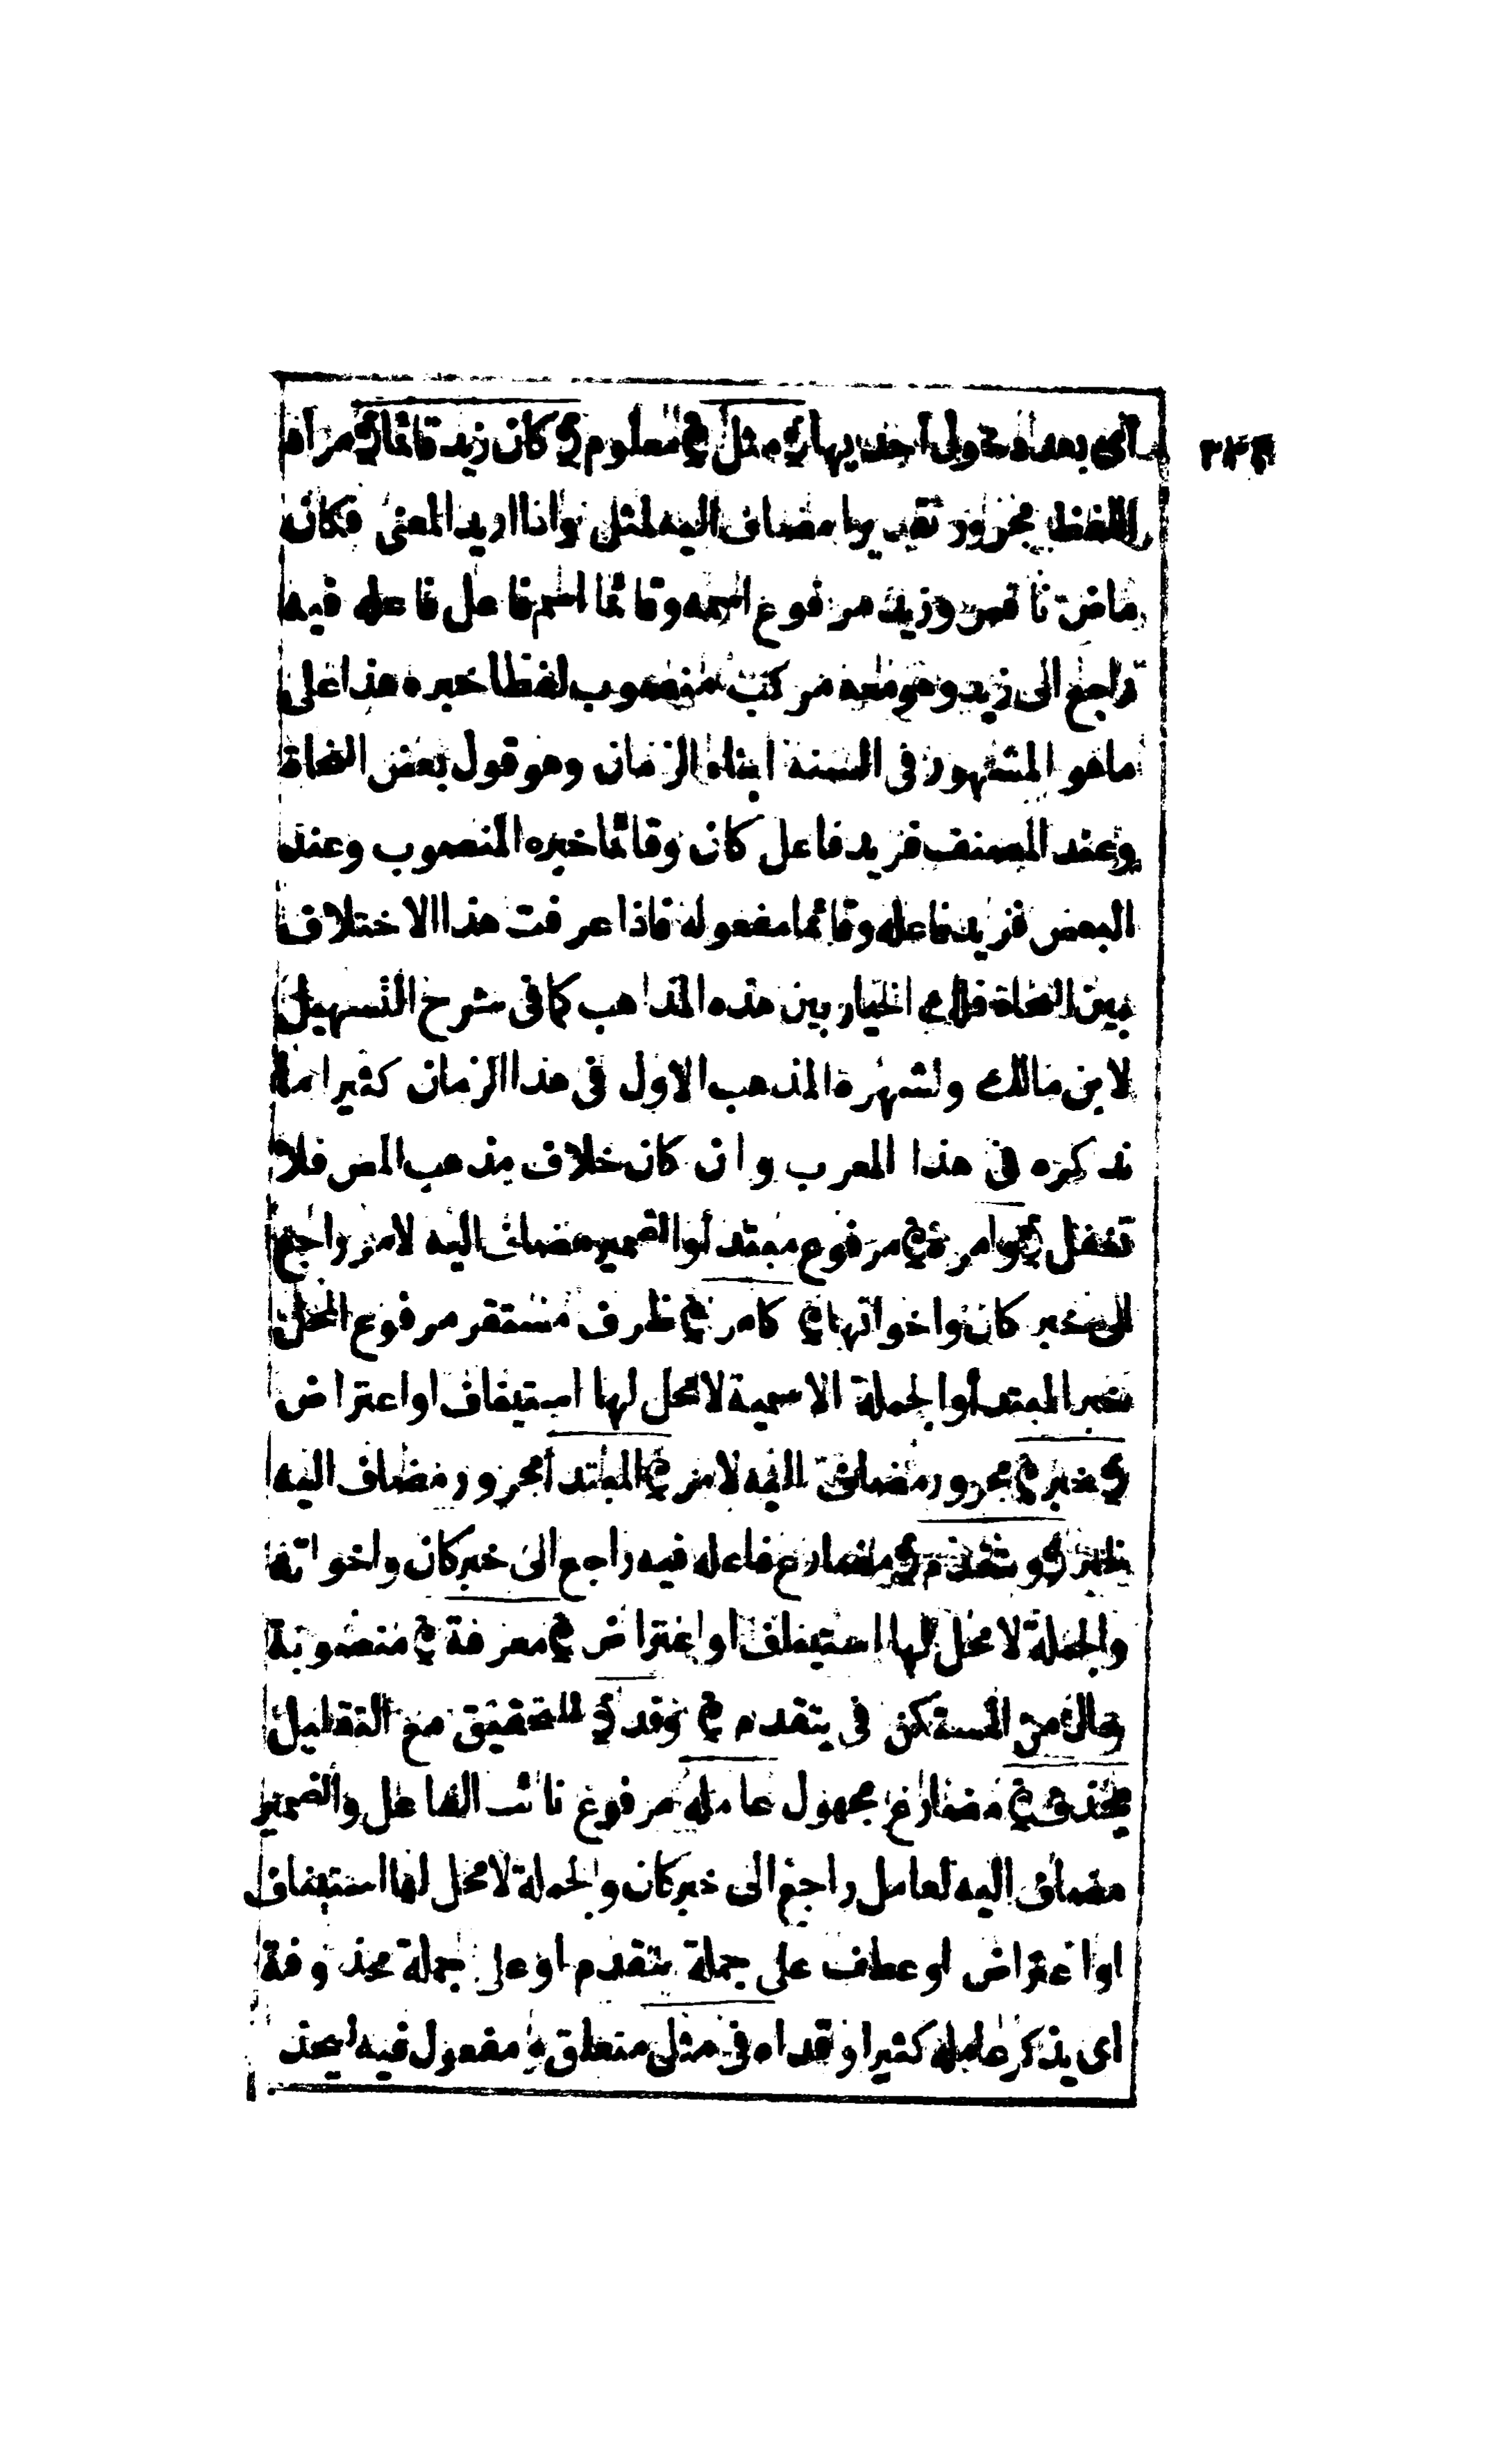 اى بعد دخول احديها مثل معلوم كان زيد قائما مراد
اللفظ مجرور تقديرا مضاف اليه لمثل وانا اريد المعنى فكان
ماض ناقص وزيد مرفوع اسمه وقائما اسم فاعل فاعله فيه
راجع الى زيد وهو معه مركب منصوب لفظا خبره هذا على
ما هو المشهور فى السنة ابناء الزمان وهو قول بعض النحاة
وعند المصنف فزيد فاعل كان وقائما خبره المنصوب وعند
البعض فزيد فاعله وقائما مفعوله فاذا عرفت هذا الاختلاف
بين النحاة فلك الخيار بين هذه المذاهب كما فى شرح التسهيل
لابن مالك ولشهرة المذهب الاول فى هذا الزمان كثيرا ما
نذكره فى هذا المعرب وان كان خلاف مذهب المص فلا
تغفل وامره مرفوع مبتدأ والضمير مضاف اليه لامر راجع
الى خبر كان واخواتها كامر ظرف مستقر مرفوع المحل
خبر المبتدأ والجملة الاسمية لا محل لها استيناف او اعتراض
خبر مجرور مضاف اليه لامر المبتدأ مجرور مضاف اليه
لخبر وتقدم مضارع فاعله فيه راجع الى خبر كان واخواتها
والجملة لا محل لها استيناف او اعتراض معرفة منصوبة
حال من المستكن فى يتقدم وقد للتحقيق مع التقليل
يحذف مضارع مجهول عامله مرفوع نائب الفاعل والضمير
مضاف اليه لعامل راجع الى خبر كان والجملة لا محل لها استيناف
او اعتراض او عطف على جملة يتقدم او على جملة محذوفة
اى يذكر عامله كثيرا وقد اه فى مثل متعلق مفعول فيه ليحذ